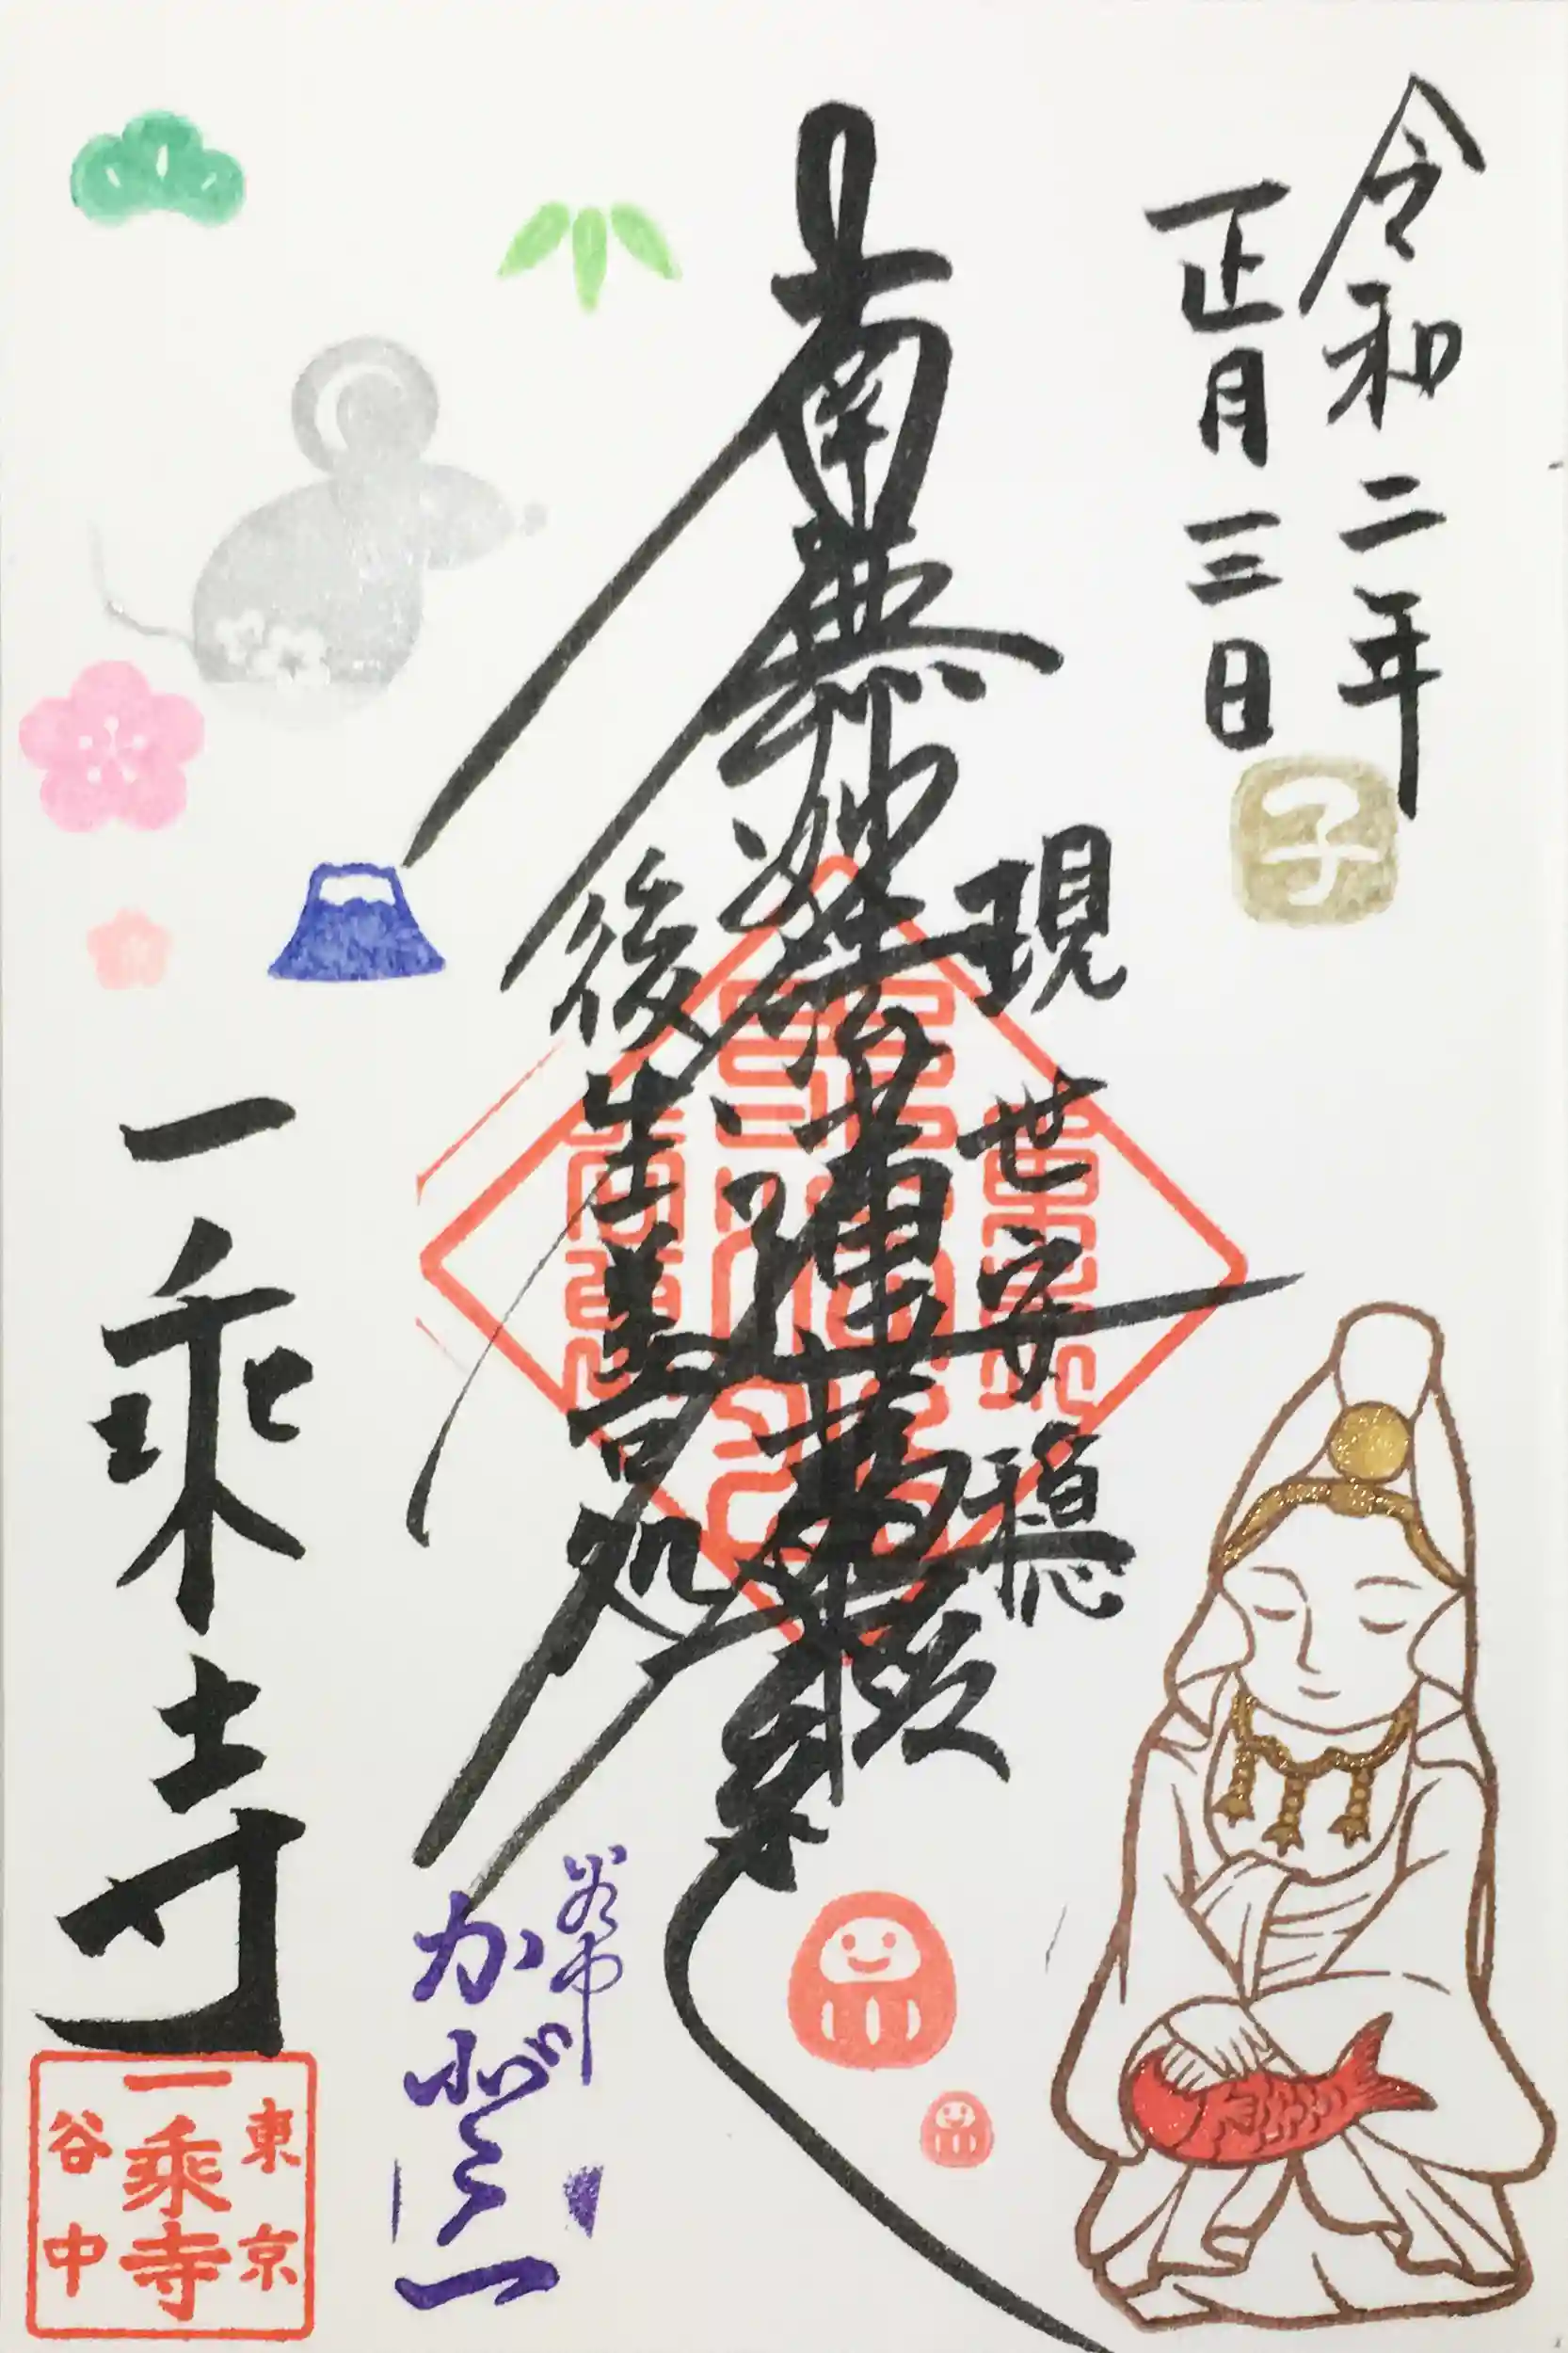 令和二年
正月三日
子
現世安穏
南無妙法蓮華経
後生善処
一乗寺
東京
一乗寺
谷中